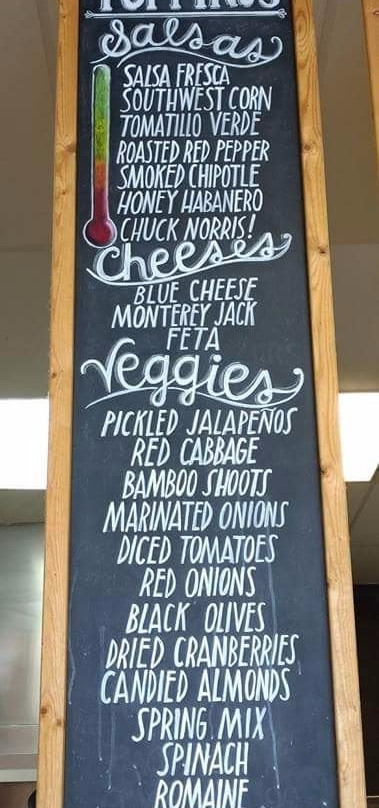 TOPPINGS
Salsas
SALSA FRESCA
SOUTHWEST CORN
TOMATILLO VERDE
ROASTED RED PEPPER
SMOKED CHIPOTLE
HONEY HABANERO
CHUCK NORRIS!
Cheeses
BLUE CHEESE
MONTEREY JACK
FETA
Veggies
PICKLED JALAPEÑOS
RED CABBAGE
BAMBOO SHOOTS
MARINATED ONIONS
DICED TOMATOES
RED ONIONS
BLACK OLIVES
DRIED CRANBERRIES
CANDIED ALMONDS
SPRING MIX
SPINACH
ROMAINE